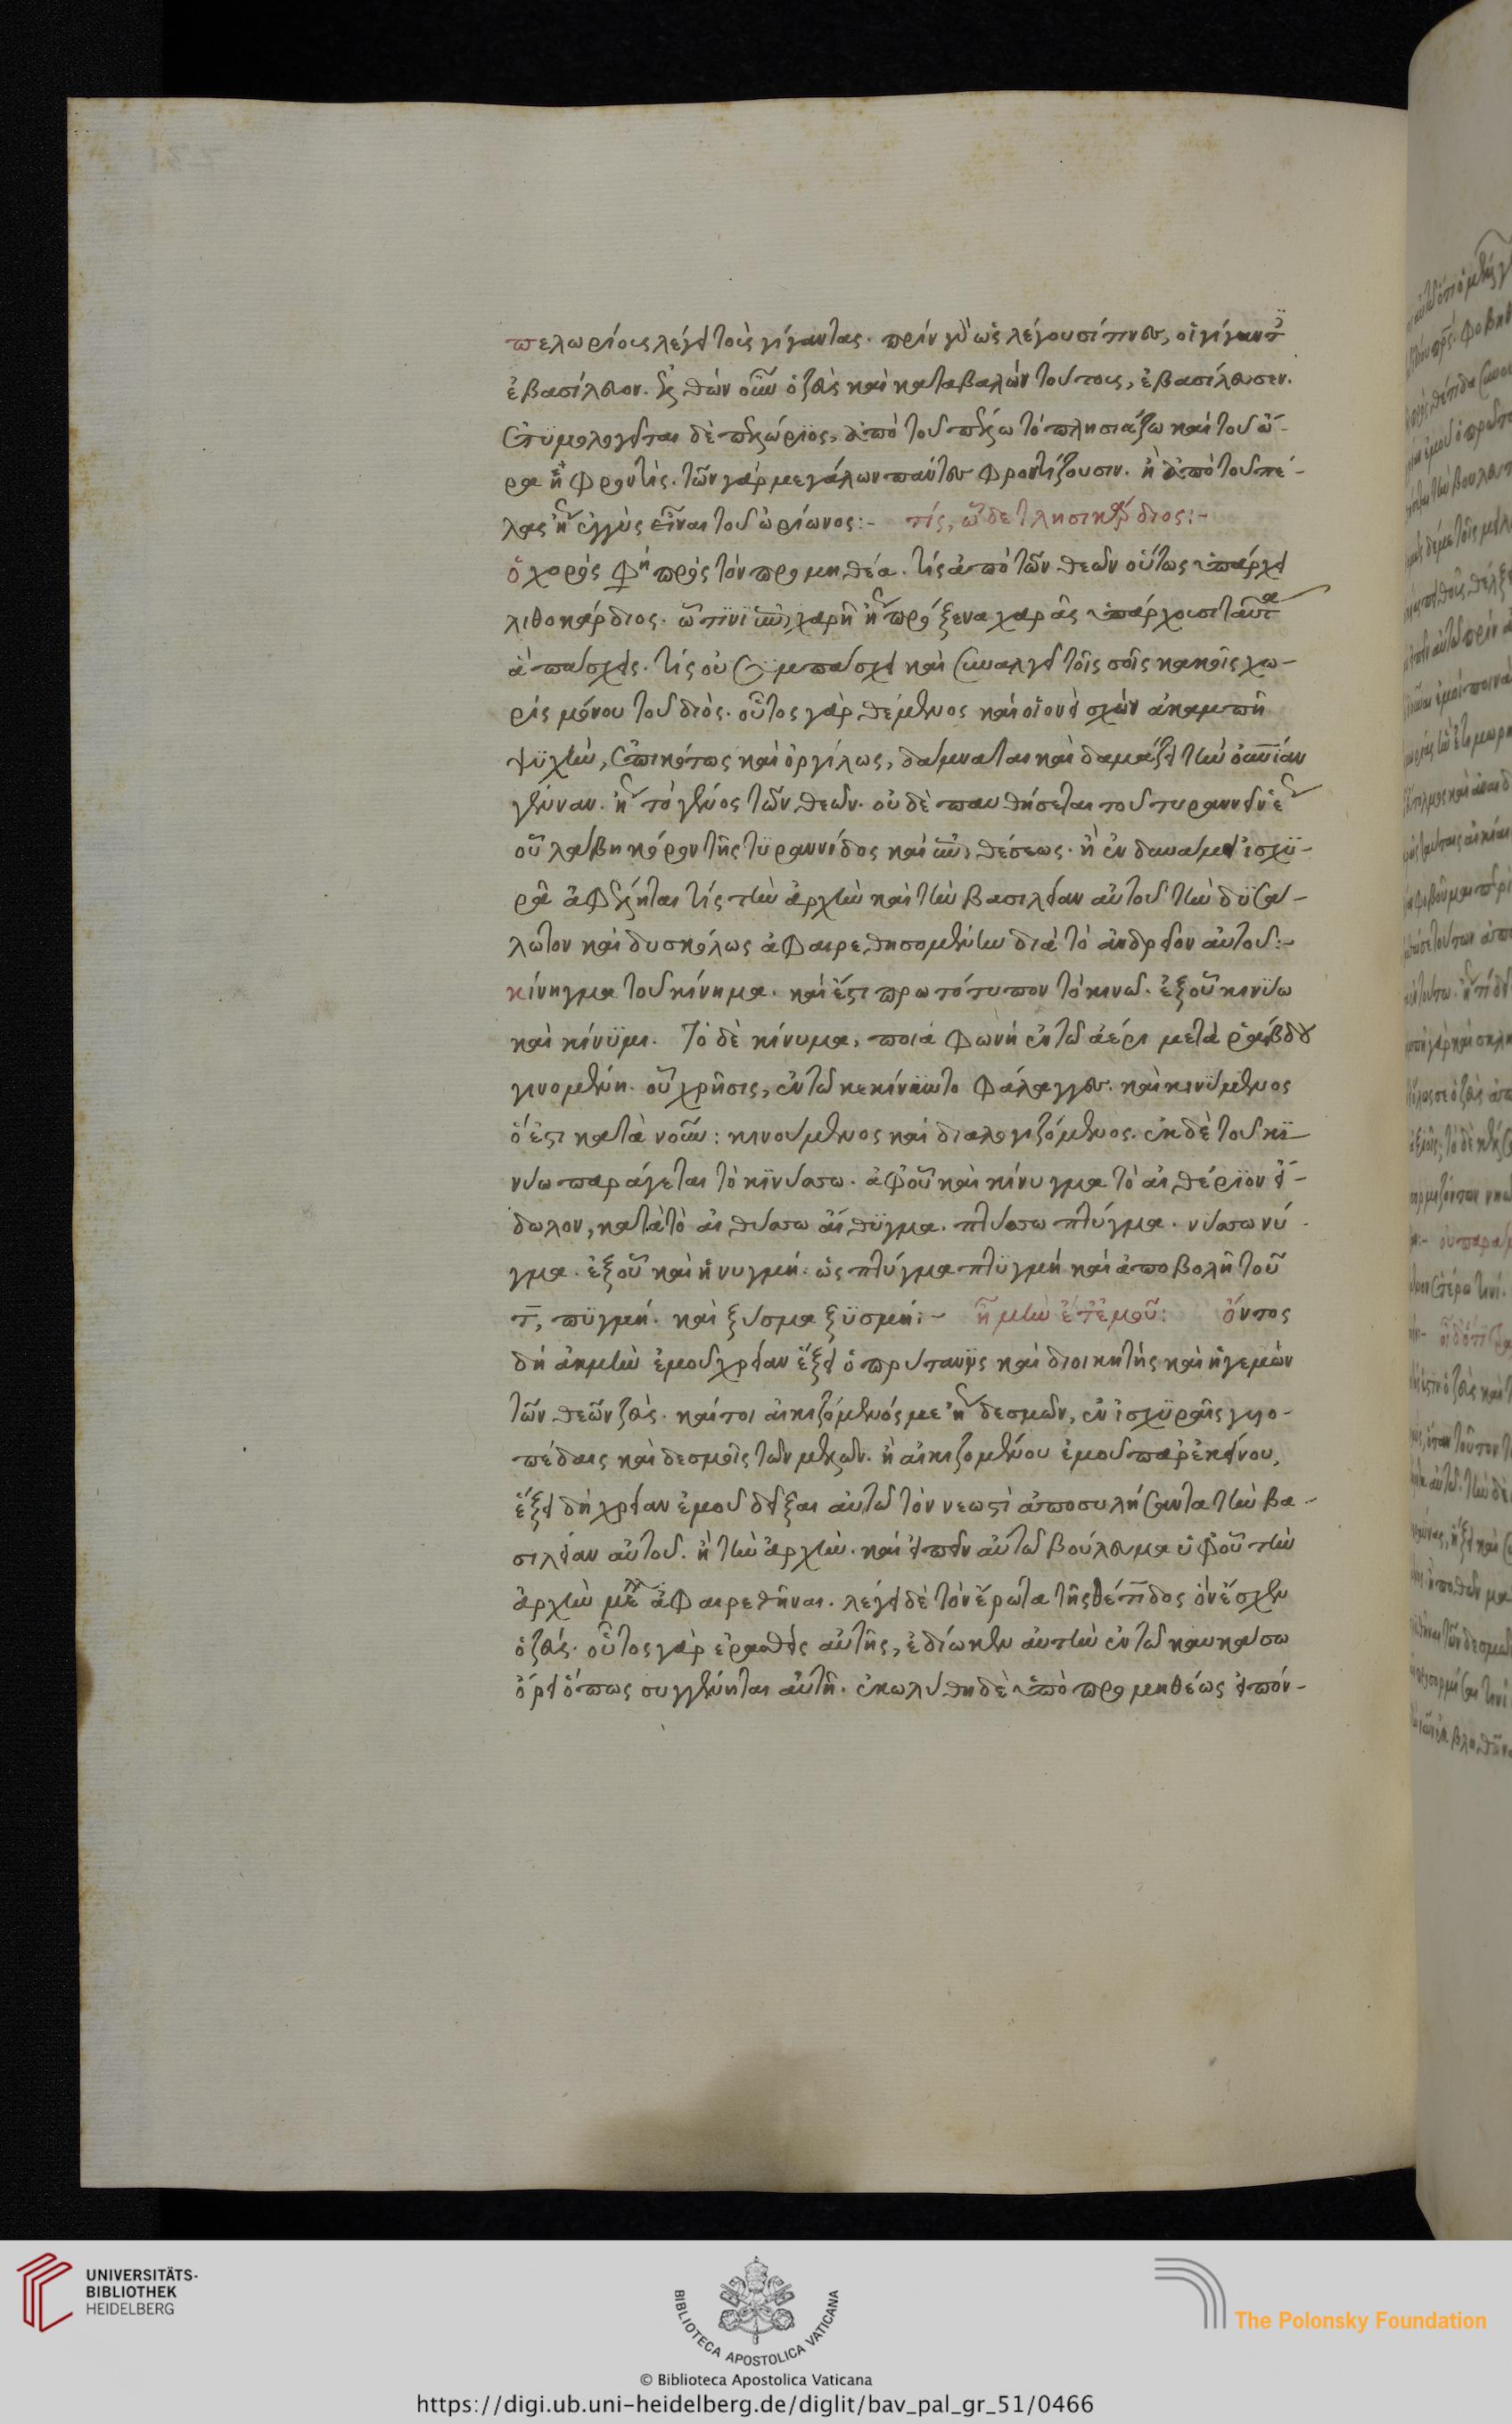 πελωρίους λέγει τοὺς γίγαντας. πρὶν γὰρ ὡς λέγουσί τινες, οἱ γίγαντες
ἐβασίλευον. ἐλθὼν οὖν ὁ ζεὺς καὶ καταβαλὼν τούτους, ἐβασίλευσεν.
ἐτυμολογεῖται δὲ πελώριος, ἀπὸ τοῦ πελῶ τὸ πλησιάζω καὶ τοῦ ὤ-
ρα ἡ φροντίς. τῶν γὰρ μεγάλων πάντες φροντίζουσιν. ἢ ἀπὸ τοῦ πέ-
λας ἤγουν ἐγγὺς εἶναι τοῦ ὠρίωνος:- τίς, ὧδε τλησικάρδιος:-
ὁ χορός φησι πρὸς τὸν προμηθέα. τίς ἀπὸ τῶν θεῶν οὕτως ὑπάρχει
λιθοκάρδιος. ᾧτινι ἐπιχαρῆ ἤγουν πρόξενα χαρᾶς ὑπάρχουσι ταῦτα
ἃ πάσχεις. τίς οὐ συμπάσχει καὶ συναλγεῖ τοῖς σοῖς κακοῖς χω-
ρὶς μόνου τοῦ διός. οὗτος γὰρ θέμενος καὶ οἱονεὶ σχὼν ἀκαμπῆ
ψυχὴν, ἐπικότως καὶ ὀργίλως, δάμναται καὶ δαμάζει τὴν οὐρανίαν
γένναν. ἤγουν τὸ γένος τῶν θεῶν. οὐδὲ παυθήσεται τοῦ τυραννεῖν ἕως
οὗ λάβῃ κόρον τῆς τυραννίδος καὶ ἐπιθέσεως. ἢ ἐν δυνάμει ἰσχυ-
ρᾷ ἀφέληται τίς τὴν ἀρχὴν καὶ τὴν βασιλείαν αὐτοῦ τὴν δυσά-
λωτον καὶ δυσκόλως ἀφαιρεθησομένην διὰ τὸ ἀνδρεῖον αὐτοῦ:-
κίνηγμα τοῦ κίνημα. καὶ ἔστι πρωτότυπον τὸ κινῶ. ἐξ οὗ κινύω
καὶ κίνυμι. τὸ δὲ κίνυμα, ποιὰ φωνὴ ἐν τῷ ἀέρι μετὰ ῥάβδου
γινομένη. οὗ χρῆσις, ἐν τῷ κεκίνυντο φάλαγγες. καὶ κινύμενος
ὅ ἐστι κατὰ νοῦν: κινούμενος καὶ διαλογιζόμενος. ἐκ δὲ τοῦ κι
νύω παράγεται τὸ κινύσσω. ἀφ' οὗ καὶ κίνυγμα τὸ αἰθέριον εἴ-
δωλον, κατὰ τὸ αἰθύσσω αἴθυγμα. πτύσσω πτύγμα. νύσσω νύ-
γμα. ἐξ οὗ καὶ ἡ νυγμή. ὡς πτύγμα πτυγμή καὶ ἀποβολῇ τοῦ
τ, πυγμή. καὶ ξύσμα ξυσμή:- ἦ μὴν ἔτ' ἐμοῦ: ὄντος
δὴ ἀκμὴν ἐμοῦ χρείαν ἕξει ὁ πρύτανις καὶ διοικητὴς καὶ ἡγεμὼν
τῶν θεῶν ζεύς. καίτοι αἰκιζόμενός με ἤγουν δεσμῶν, ἐν ἰσχυραῖς γυιο-
πέδαις καὶ δεσμοῖς τῶν μελῶν. ἢ αἰκιζομένου ἐμοῦ παρ' ἐκείνου,
ἕξει δὴ χρείαν ἐμοῦ δεῖξαι αὐτῷ τὸν νεωστὶ ἀποσυλήσαντα τὴν βα-
σιλείαν αὐτοῦ. ἢ τὴν ἀρχήν. καὶ εἰπεῖν αὐτῷ βούλευμα ὑφ' οὗ τὴν
ἀρχὴν μέλλει ἀφαιρεθῆναι. λέγει δὲ τὸν ἔρωτα τῆς θέτιδος ὃν ἔσχεν
ὁ ζεύς. οὗτος γὰρ ἐρασθεὶς αὐτῆς, ἐδίωκεν αὐτὴν ἐν τῷ καυκάσῳ
ὄρει ὅπως συγγένηται αὐτῇ. ἐκωλύθη δὲ ὑπὸ προμηθέως εἰπόν-
UNIVERSITÄTS-
BIBLIOTHEK
HEIDELBERG
BIBLIOTECA APOSTOLICA VATICANA
The Polonsky Foundation
© Biblioteca Apostolica Vaticana
https://digi.ub.uni-heidelberg.de/diglit/bav_pal_gr_51/0466